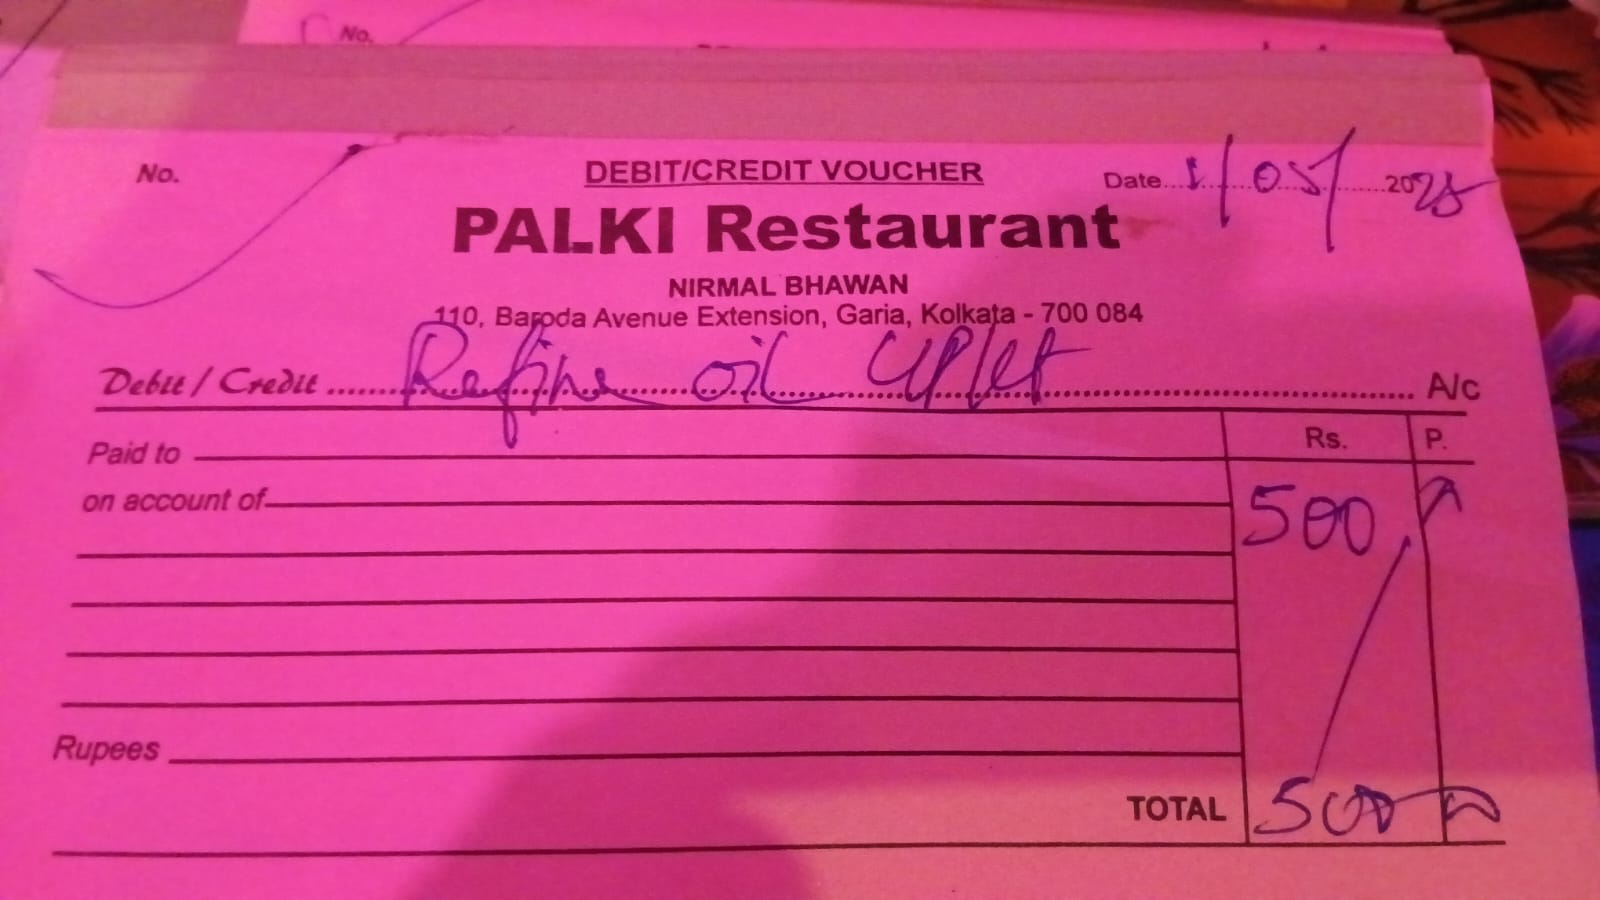 No.
No.
DEBIT/CREDIT VOUCHER
Date 1/05/ 2025
PALKI Restaurant
NIRMAL BHAWAN
110, Baroda Avenue Extension, Garia, Kolkata - 700 084
Debit / Credit Refine oil A/c
Rs. P.
Paid to
on account of
500
Rupees
TOTAL 500